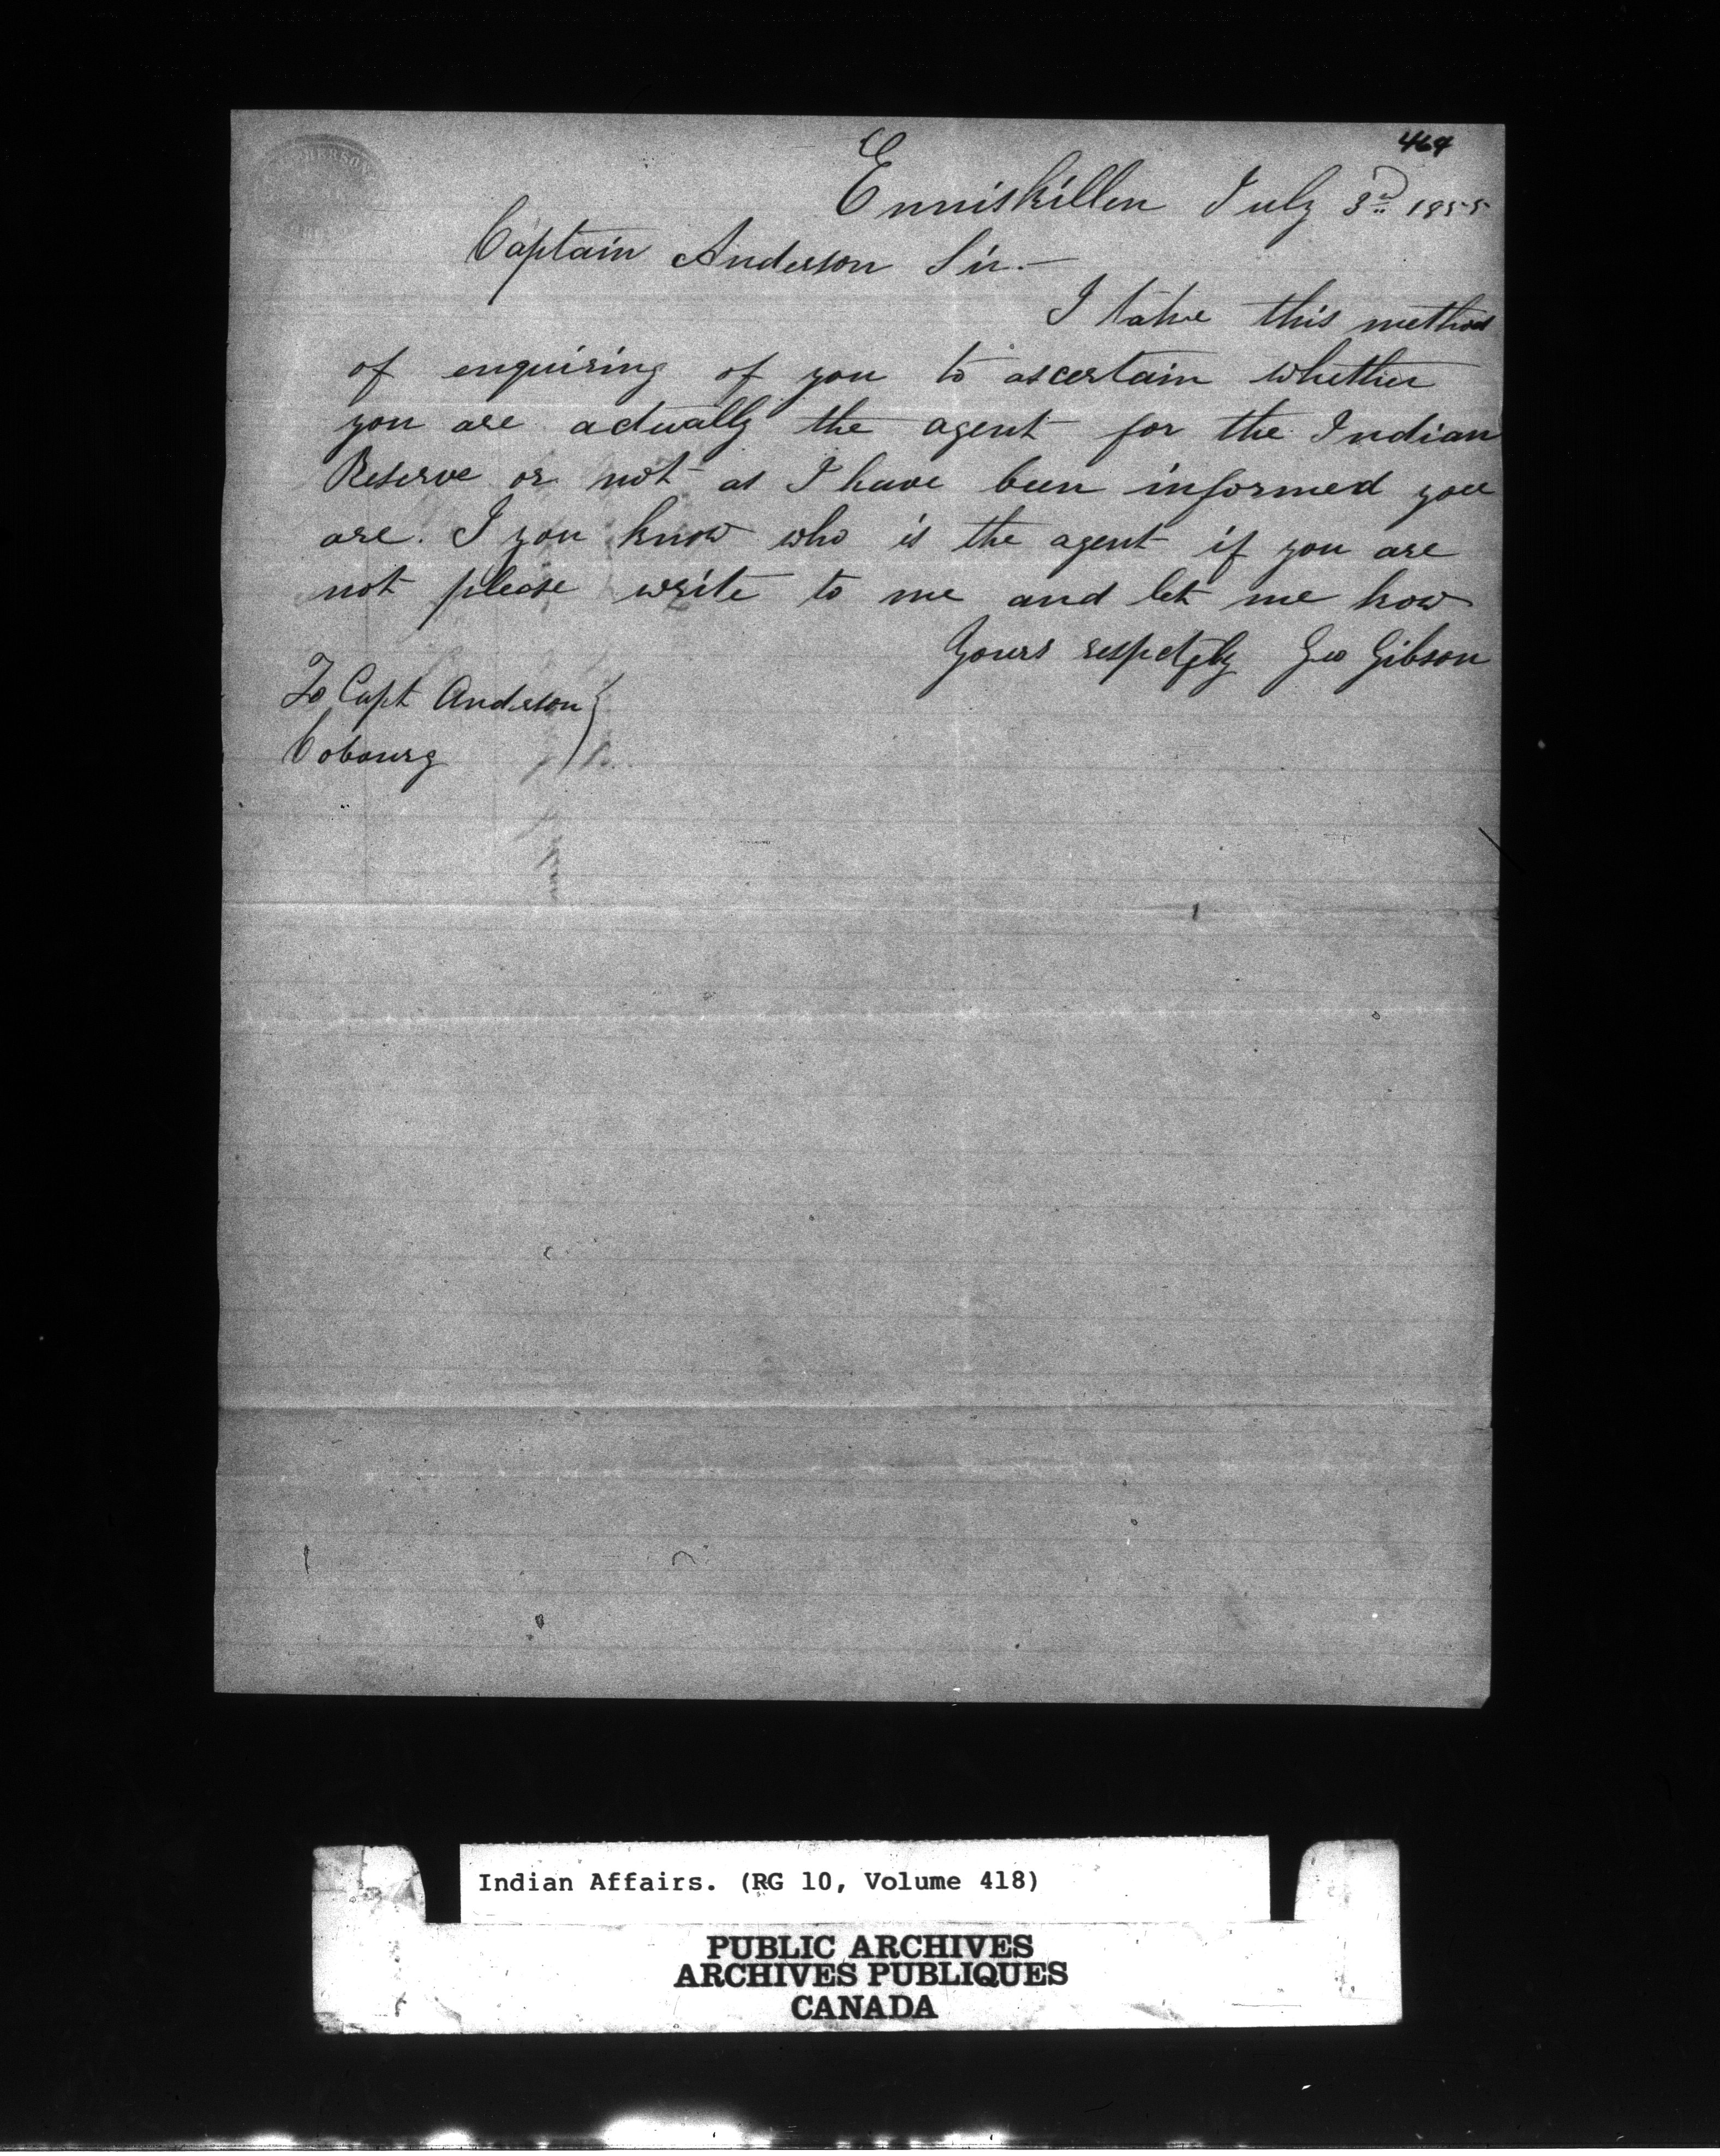 464
Enniskillen July 3rd 1855
Captain Anderson Sir.-
I take this method
of enquiring of you to ascertain whether
you are actually the agent for the Indian
Reserve or not as I have been informed you
are. I you know who is the agent if you are
not please write to me and let me know
Yours respctfly Geo Gibson
To Capt Anderson
Cobourg
Indian Affairs. (RG 10, Volume 418)
PUBLIC ARCHIVES
ARCHIVES PUBLIQUES
CANADA